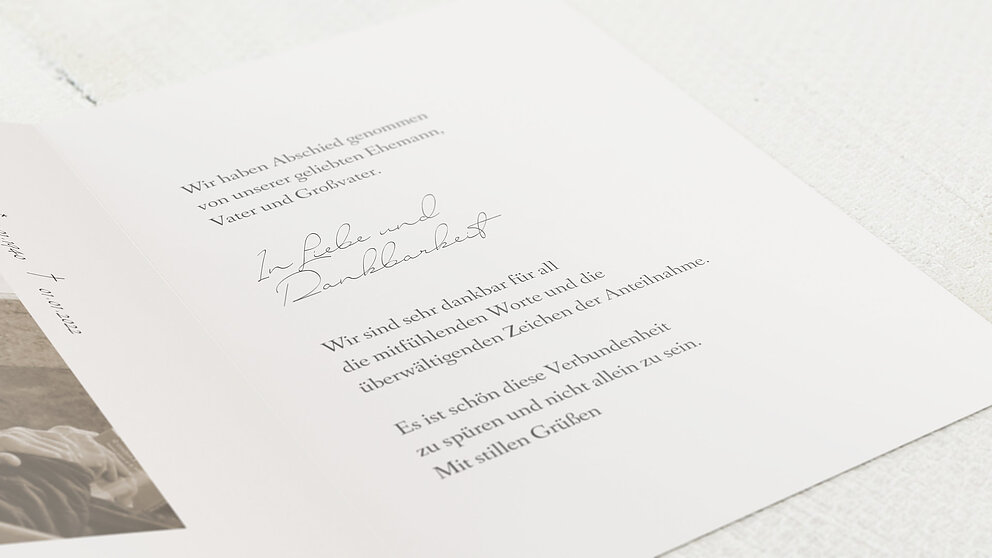 † 01.01.2022
Wir haben Abschied genommen
von unserer geliebten Ehemann,
Vater und Großvater.
In Liebe und
Dankbarkeit
Wir sind sehr dankbar für all
die mitfühlenden Worte und die
überwältigenden Zeichen der Anteilnahme.
Es ist schön diese Verbundenheit
zu spüren und nicht allein zu sein.
Mit stillen Grüßen